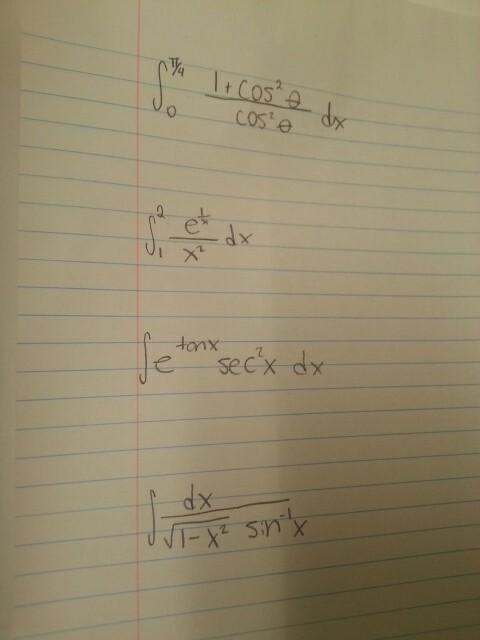 ∫₀^{π/4} (1 + cos²θ)/(cos²θ) dx
∫₁² e^{1/x}/x² dx
∫ e^{tanx} sec²x dx
∫ dx/(√(1-x²) sin⁻¹x)